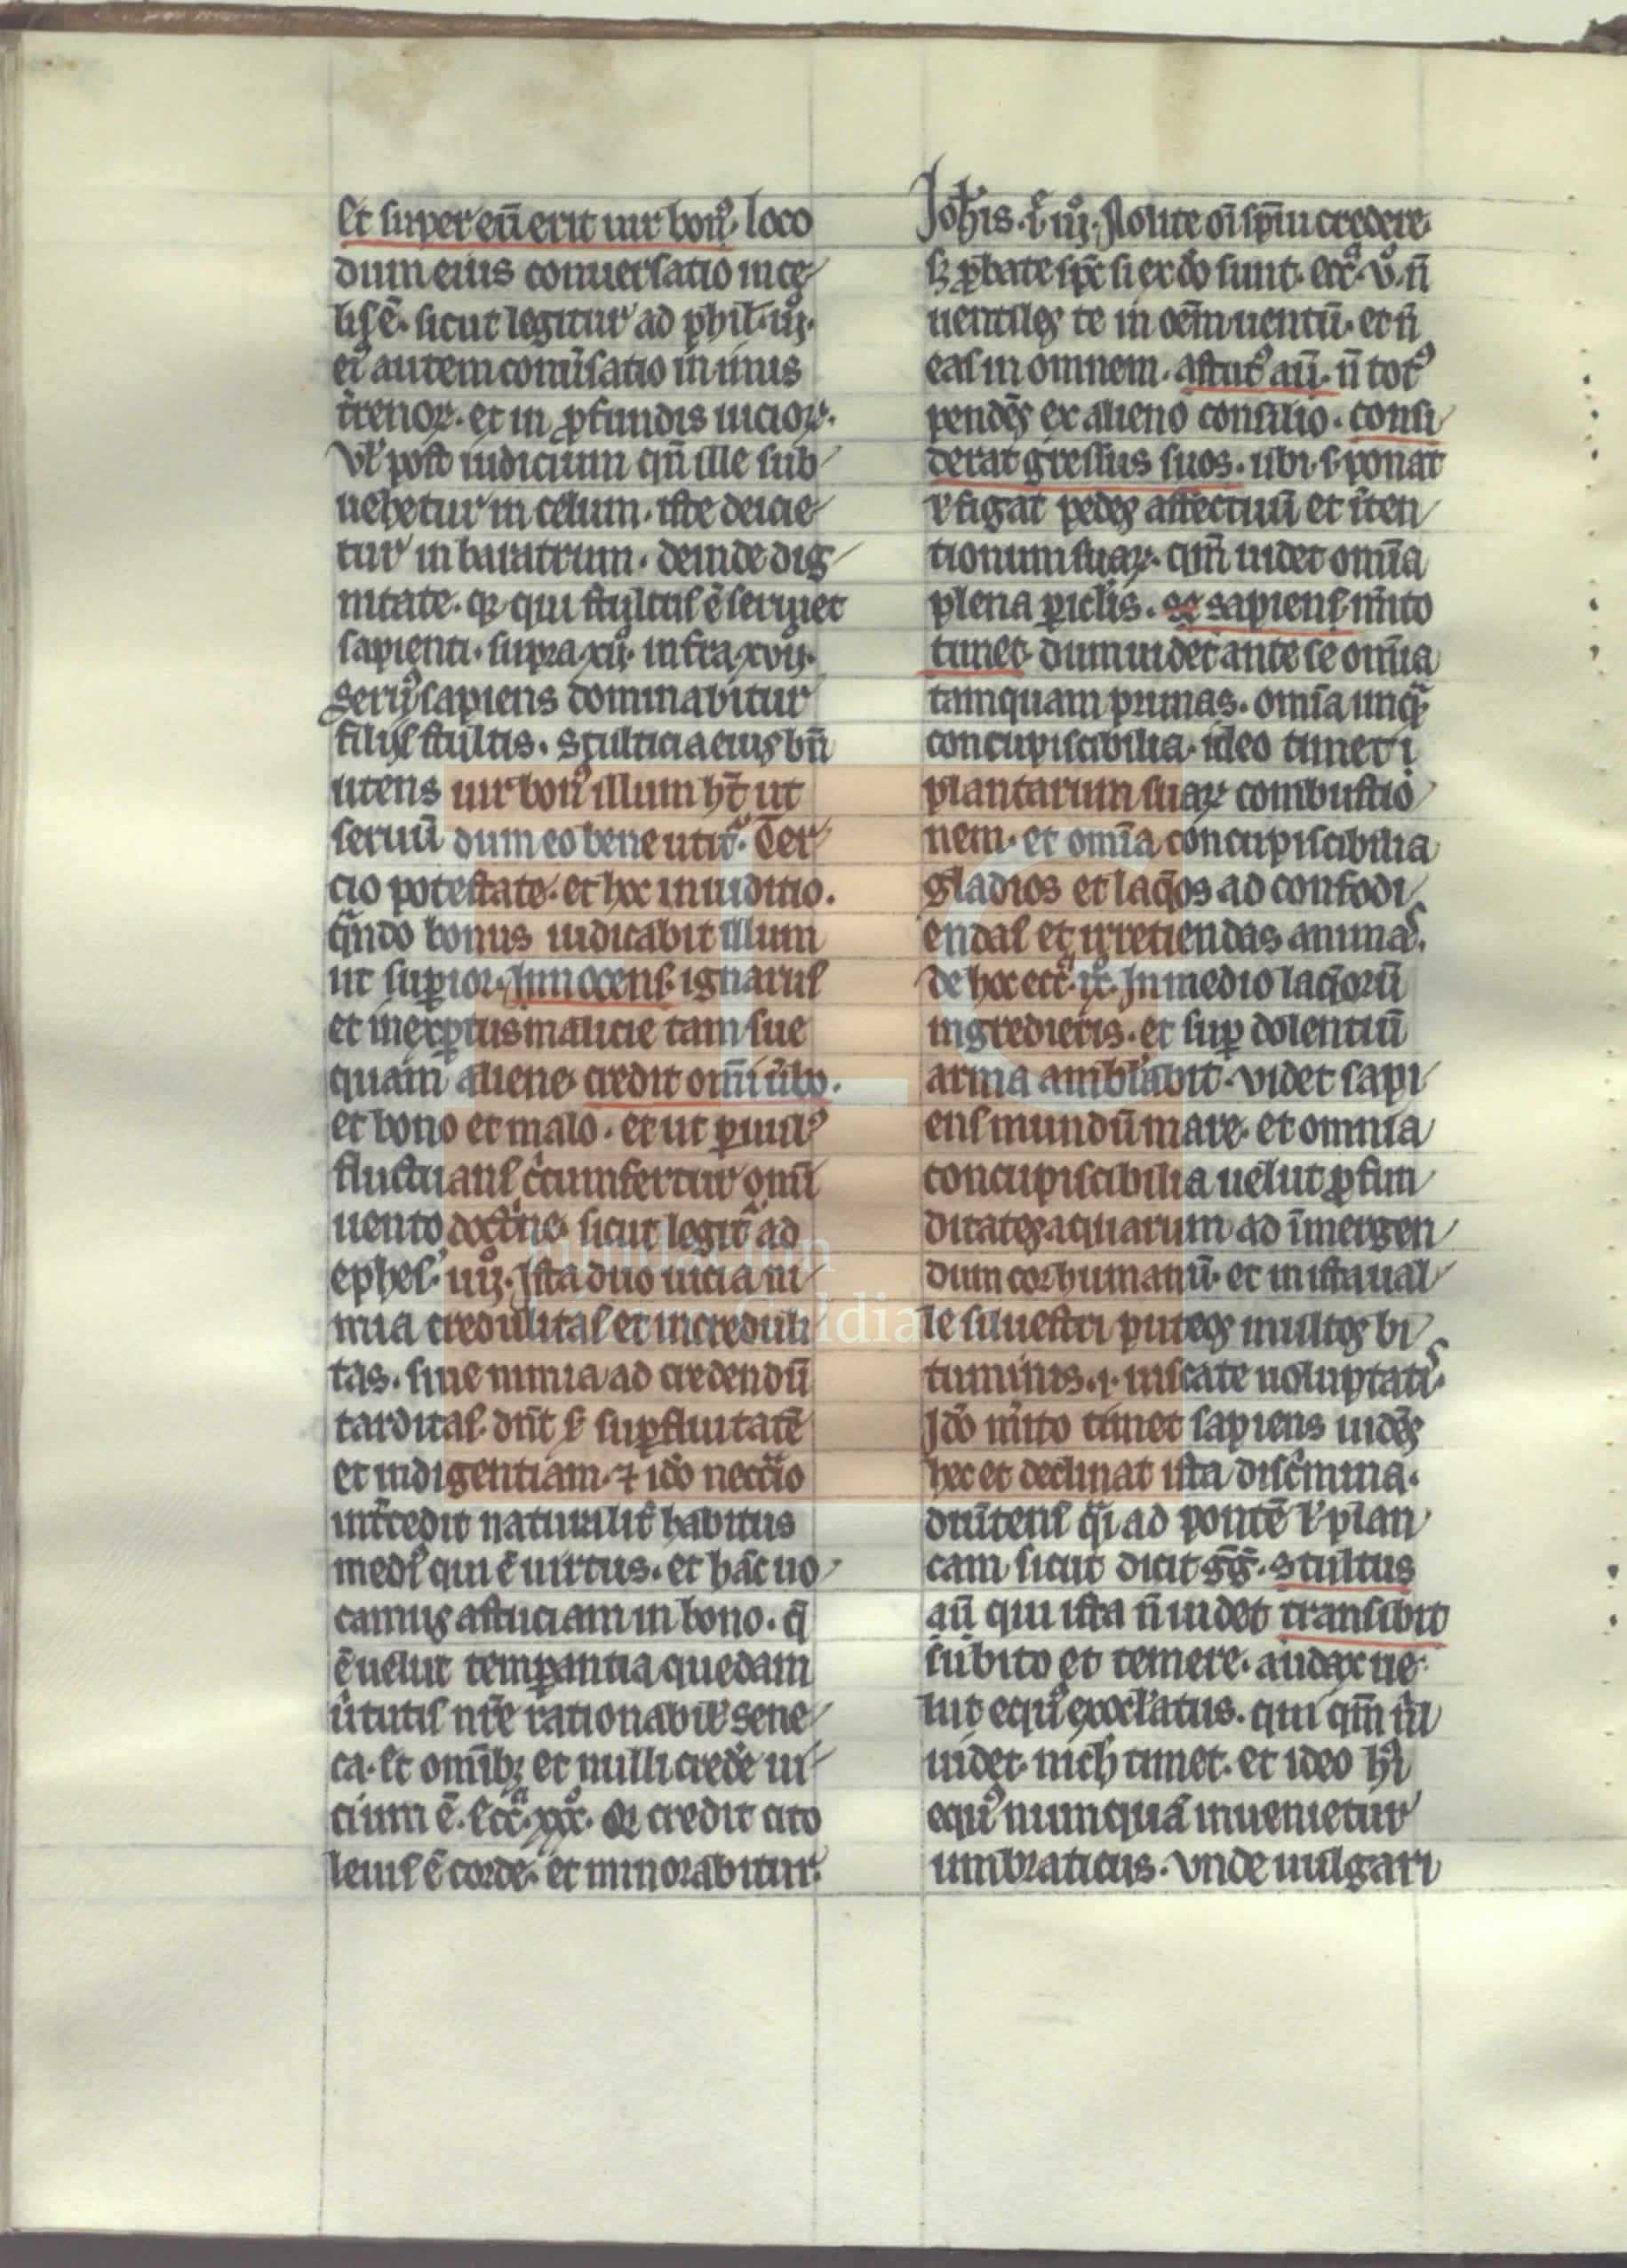 Et super eū erit uir bonꝰ. loco
dum eius conuersatio in ce
lis ē. sicut legitur ad phil. iij.
eiꝰ autem conuersatio in imis
t̄renoꝝ. et in ꝓfundis uicioꝝ.
Vl̄ post iudicium qn̄ ille sub
uehetur in celum. iste deicie
tur in baratrum. deinde dig
nitate. qꝛ qui stultus ē seruiet
sapienti. supra xij. infra xvij.
Seruꝰ sapiens dominabitur
filijs stultis. Stulticia eius bn̄
utens uir bonꝰ illum hꝫ ut
seruū dum eo bene utitᷣ. Ter
cio potestate. et hoc in iuditio.
qn̄do bonus iudicabit illum
ut suꝑior. Innocens. ignarus
et inexꝑtus malicie tam sue
quam aliene. credit om̄i ūbo.
et bono et malo. et ut ꝑuulꝰ
fluctuans c̄cumfertur om̄i
uento doct̄ne. sicut legitᷣ ad
ephes. iiij. Ista duo uicia ni
mia credulitas et increduli
tas. siue nimia ad credendū
tarditas. dn̄t ẜ suꝑfluitatē
et indigentiam. ⁊ iđo neccͣio
int̄cedit naturalit̄ habitus
mediꝰ qui ē uirtus. et hāc uo
camus astuciam in bono. q̄
ē uelut temꝑantia quedam
ūtutis nr̄e rationabil̓. Sene
ca. Et omībꝫ et nulli cred̓e ui
cium ē. Ecc̄ͣ. xix. Qi credit cito
leuis ē corde. et minorabitur.
Joh̄is. i͂ iiij. Nolite om̄i sp̄iui credere
sꝫ ꝓbate sp̄c si ex đo sunt. ecc̄ͣ. v. n̄
uentiles te in oēm uentū. et n̄
eas in omnem. astutꝰ aū. n̄ totꝰ
pendēs ex alieno consilio. consi
derat gressus suos. ubi .s. ponat
ł figat pedes affectuū et īten
tionum suaꝝ. cum uidet omīa
plena ꝑiclis. Et sapiens m̄ito
timet. dum uidet ante se omīa
tamquam prunas. omīa inqͣ
concupiscibilia. ideo timet i
plantarum suaꝝ combustio
nem. et omīa concupiscibilia
gladios et laq̄os ad confodi
endas et irretiendas animas.
de hoc ecc̄ͣ. ix. In medio laq̄orū
ingredieris. et suꝑ dolentiū
arma amb̄labit. Videt sapi
ens mundū mare. et omnia
concupiscibilia uelut ꝓfun
ditates aquarum ad īmergen
dum cor humanū. et in ista ual
le siluestri puteos multos bi
tuminis. .i. uiscate uoluptatis.
Iđo m̄ito timet sapiens uidēs
hec et declinat ista disc̄mina.
diūtens qͣi ad pontē ł plan
cam sicut dicit gḡ. Stultus
aū qui ista n̄ uidet transibit
subito et temere. audax ue
lut equꝰ exoc̄latus. qui qm̄ n̄l
uidet. nich̄ timet. et ideo hͥ
equꝰ numquā inuenietur
umbraticus. Vnde uulgari